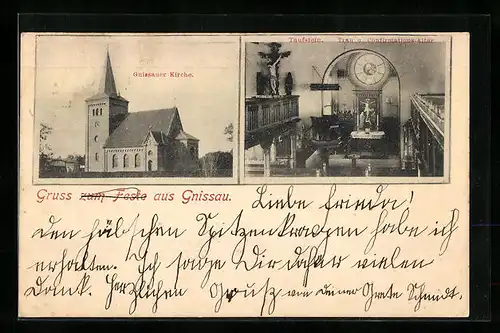 Gnissauer Kirche.
Taufstein. Trau u. Confirmations-Altar
Gruss zum Feste aus Gnissau.
Liebe Frieda!
Den hübschen Spitzenkragen habe ich
erhalten. Ich sage Dir dafür vielen
Dank. Herzlichen Gruß von deiner Grete Schmidt.